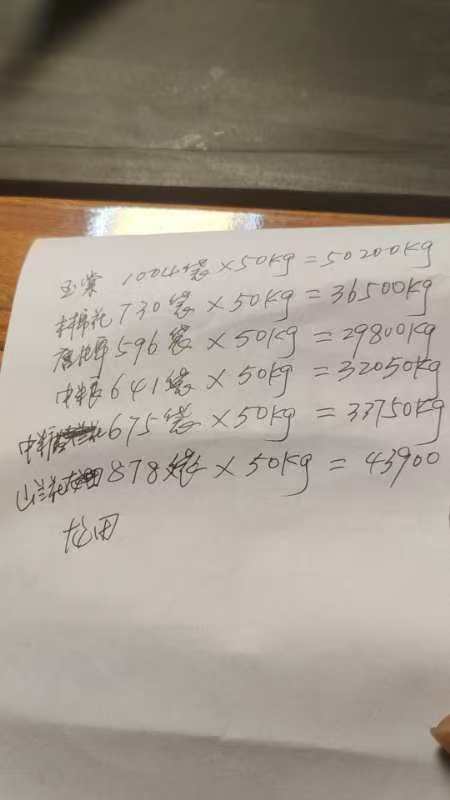 玉棠 1004袋×50kg=50200kg
木棉花730袋×50kg=36500kg
596袋×50kg=29800kg
中粮641袋×50kg=32050kg
中粮675袋×50kg=33750kg
山兰花878袋×50kg=43900
龙田